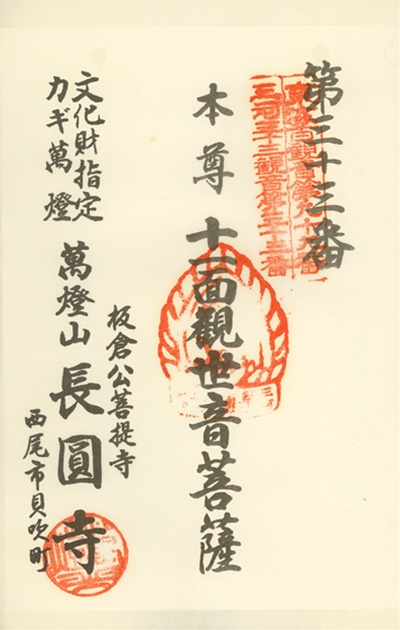 第三十三番
三河三十三観音第三十三番
本尊 十一面觀世音菩薩
板倉公菩提寺
萬燈山 長圓寺
西尾市貝吹町
文化財指定
カギ萬燈